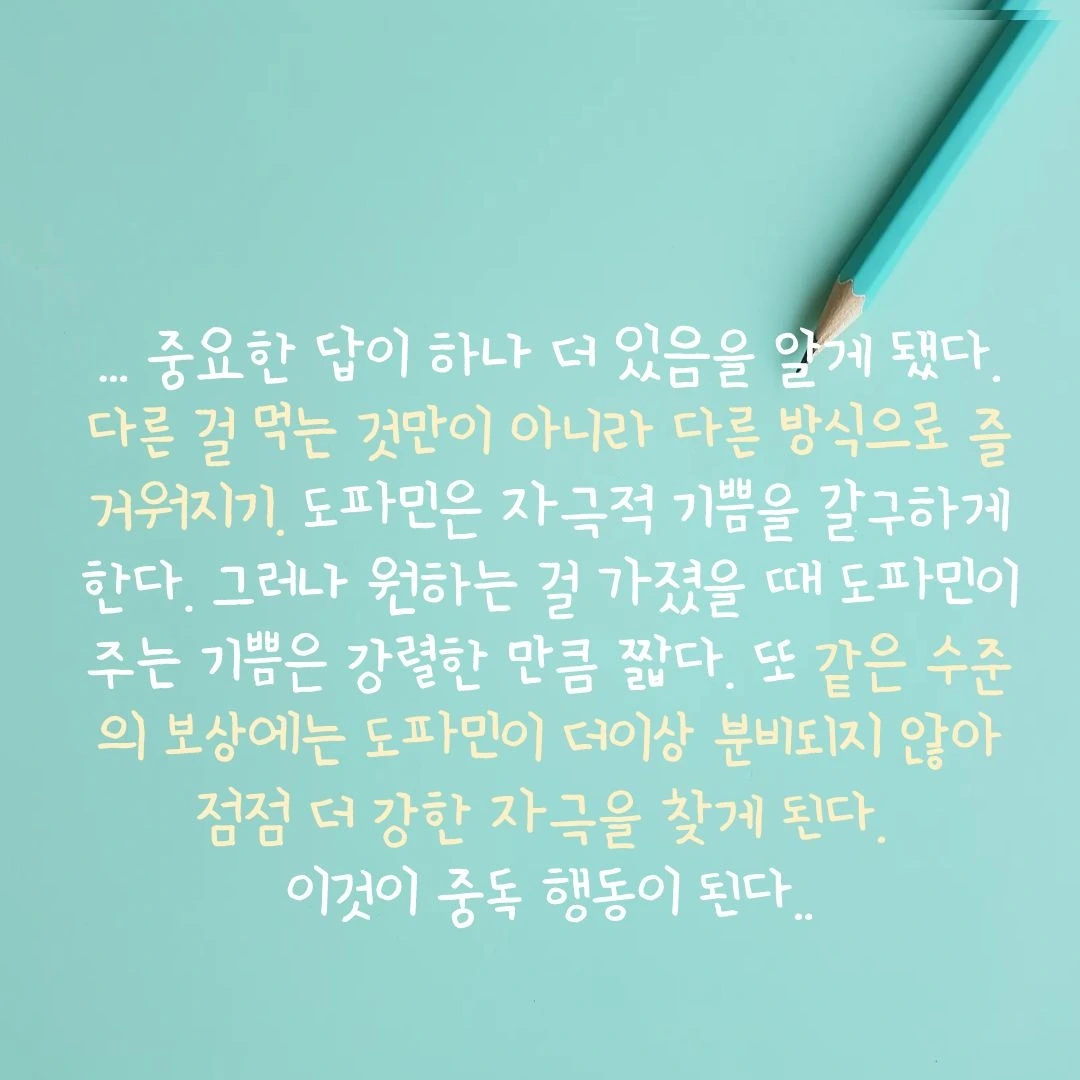 ... 중요한 답이 하나 더 있음을 알게 됐다.
다른 걸 먹는 것만이 아니라 다른 방식으로 즐
거워지기. 도파민은 자극적 기쁨을 갈구하게
한다. 그러나 원하는 걸 가졌을 때 도파민이
주는 기쁨은 강렬한 만큼 짧다. 또 같은 수준
의 보상에는 도파민이 더이상 분비되지 않아
점점 더 강한 자극을 찾게 된다.
이것이 중독 행동이 된다..